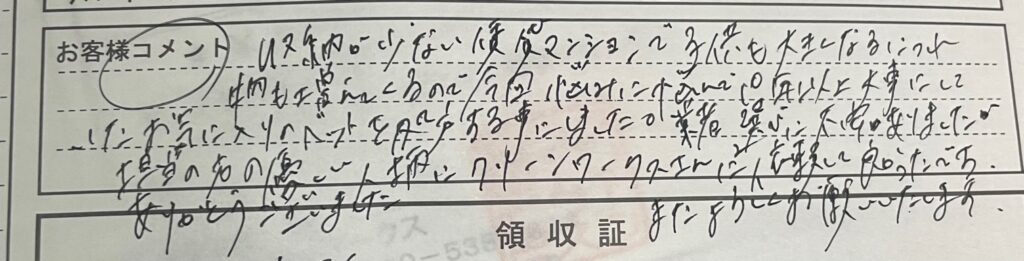 お客様コメント 収納が少ない賃貸マンションで子供も大きくなるにつれ
物も増えてくるので今回 10年以上大事にして
したお気に入りのベットを処分する事にしましたが業者選びに不安がありましたが
担当の方の優しい人柄にクリーンワークスさんに依頼して良かったです。
ありがとうございました またよろしくお願いいたします。
クス
0-538
領収証